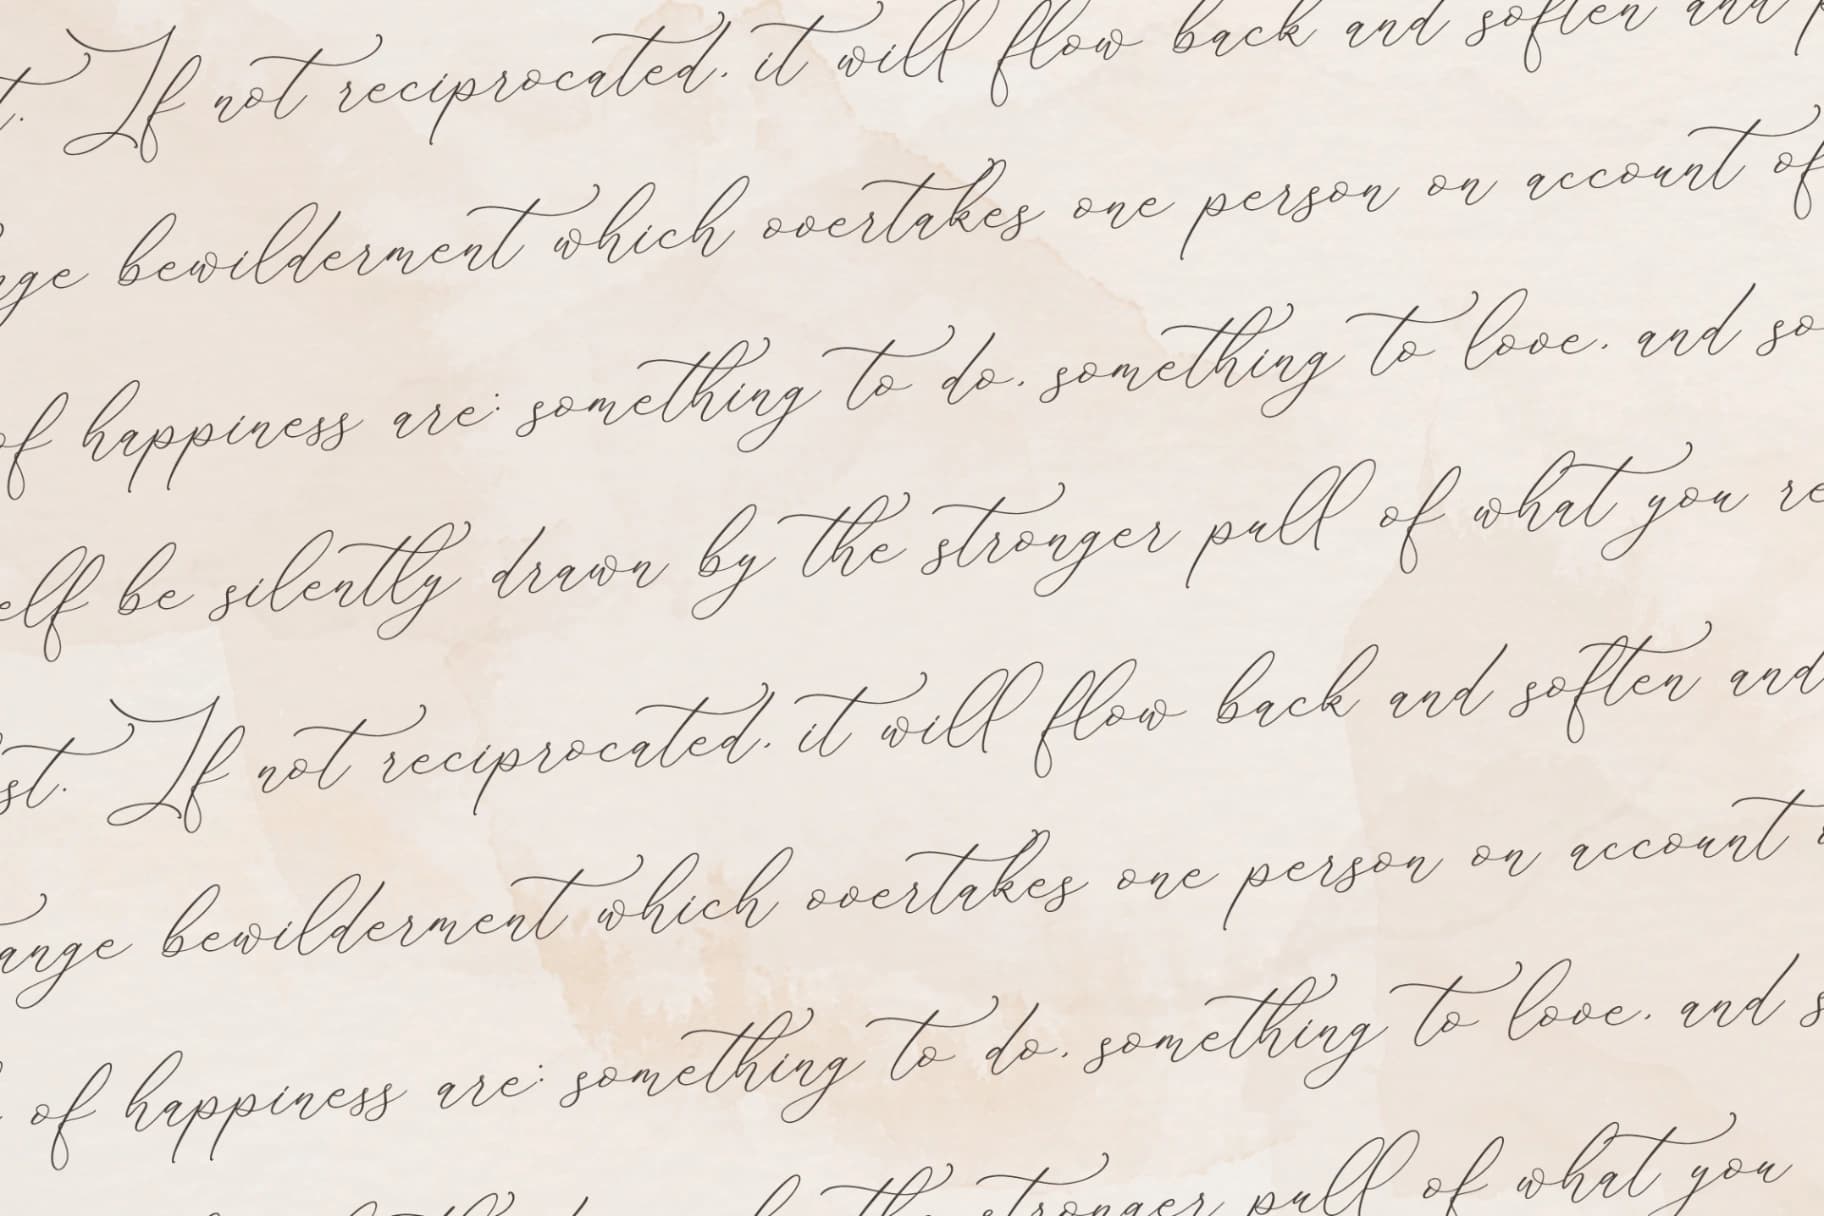 t. If not reciprocated, it will flow back and soften and
nge bewilderment which overtakes one person on account of
of happiness are: something to do, something to love, and so
elf be silently drawn by the stronger pull of what you re
st. If not reciprocated, it will flow back and soften and
ange bewilderment which overtakes one person on account
of happiness are: something to do, something to love, and s
by the stronger pull of what you